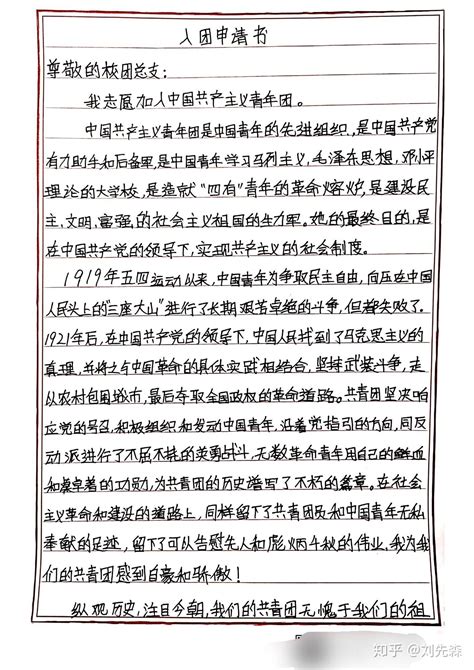 入团申请书
尊敬的校团总支：
我志愿加入中国共产主义青年团。
中国共产主义青年团是中国青年的先进组织，是中国共产党
有力助手和后备军，是中国青年学习马列主义，毛泽东思想，邓小平
理论的大学校，是造就“四有”青年的革命熔炉，是建设民
主，文明，富强，的社会主义祖国的生力军。她的最终目的，是
在中国共产党的领导下，实现共产主义的社会制度。
1919年五四运动以来，中国青年为争取民主自由，向压在中国
人民头上的“三座大山”进行了长期艰苦卓绝的斗争，但都失败了。
1921年后，在中国共产党的领导下，中国人民找到了马克思主义的
真理，并将之与中国革命的具体实践相结合，坚持武装斗争，走
以农村包围城市，最后夺取全国政权的革命道路。共青团坚决响
应党的号召，积极组织和发动中国青年，沿着党指引的方向，同反
动派进行了不屈不挠的英勇战斗，无数革命青年用自己的鲜血
和卓著的功勋，为共青团的历史谱写了不朽的篇章。在社会
主义革命和建设的道路上，同样留下了共青团员和中国青年无私
奉献的足迹，留下了可以告慰先人和彪炳千秋的伟业，我为我
们的共青团感到自豪和骄傲！
纵观历史，注目今朝，我们的共青团无愧于我们的祖
知乎 @刘先森